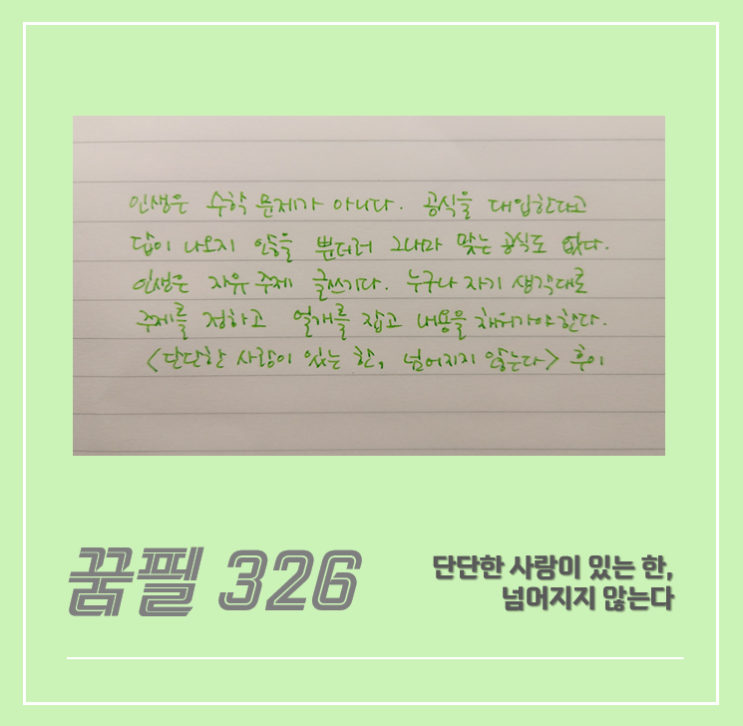 인생은 수학 문제가 아니다. 공식을 대입한다고
답이 나오지 않을 뿐더러 그나마 맞는 공식도 없다.
인생은 자유 주제 글쓰기다. 누구나 자기 생각대로
주제를 정하고 얼개를 잡고 내용을 채워가야 한다.
<단단한 사랑이 있는 한, 넘어지지 않는다> 후이
꿈필 326
단단한 사랑이 있는 한,
넘어지지 않는다